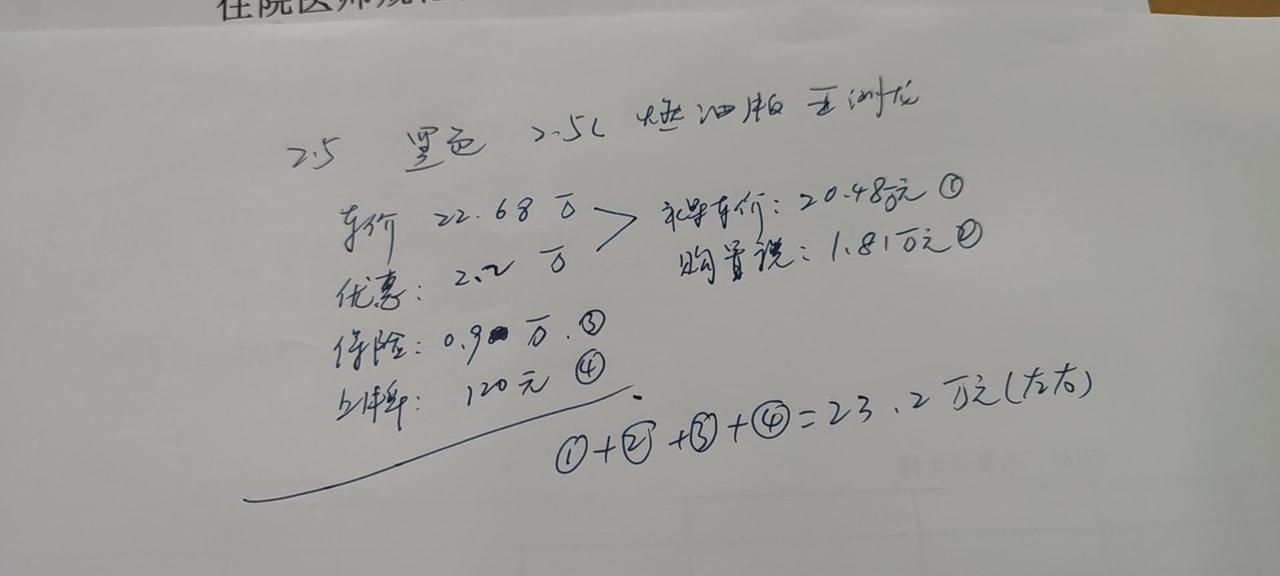 住院医师规
2.5 黑色 2.5L 燃油版 亚洲龙
车价 22.68万
裸车价：20.48万元 ①
优惠：2.2万
购置税：1.81万元 ②
保险：0.9万.③
上牌：120元 ④
①+②+③+④=23.2万元(左右)